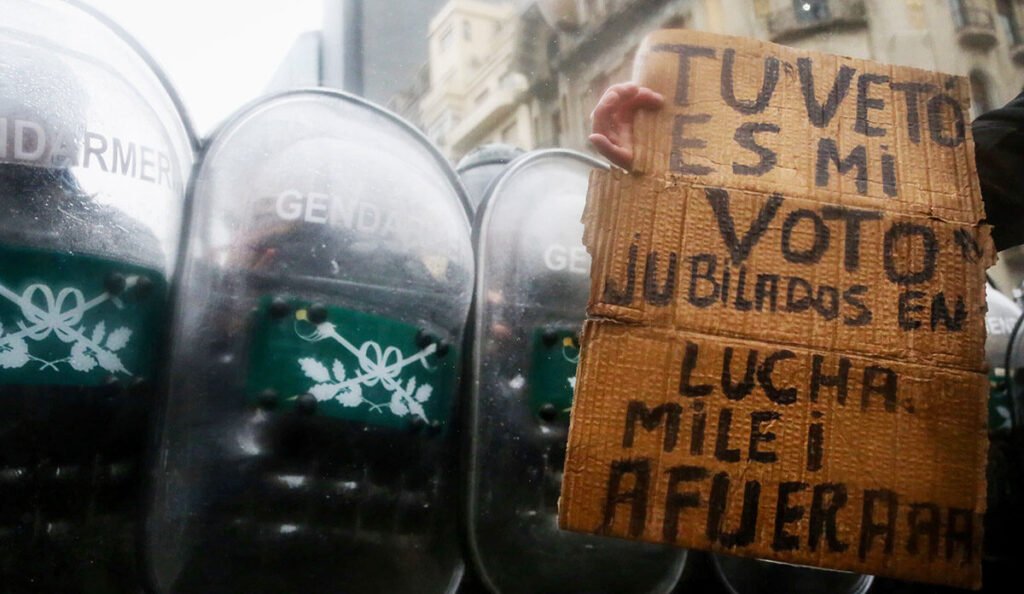 GENDARMER
GENDAR
GE
TU VETO
ES MI
VOTO
JUBILADOS EN
LUCHA.
MILEI
AFUERAAAA